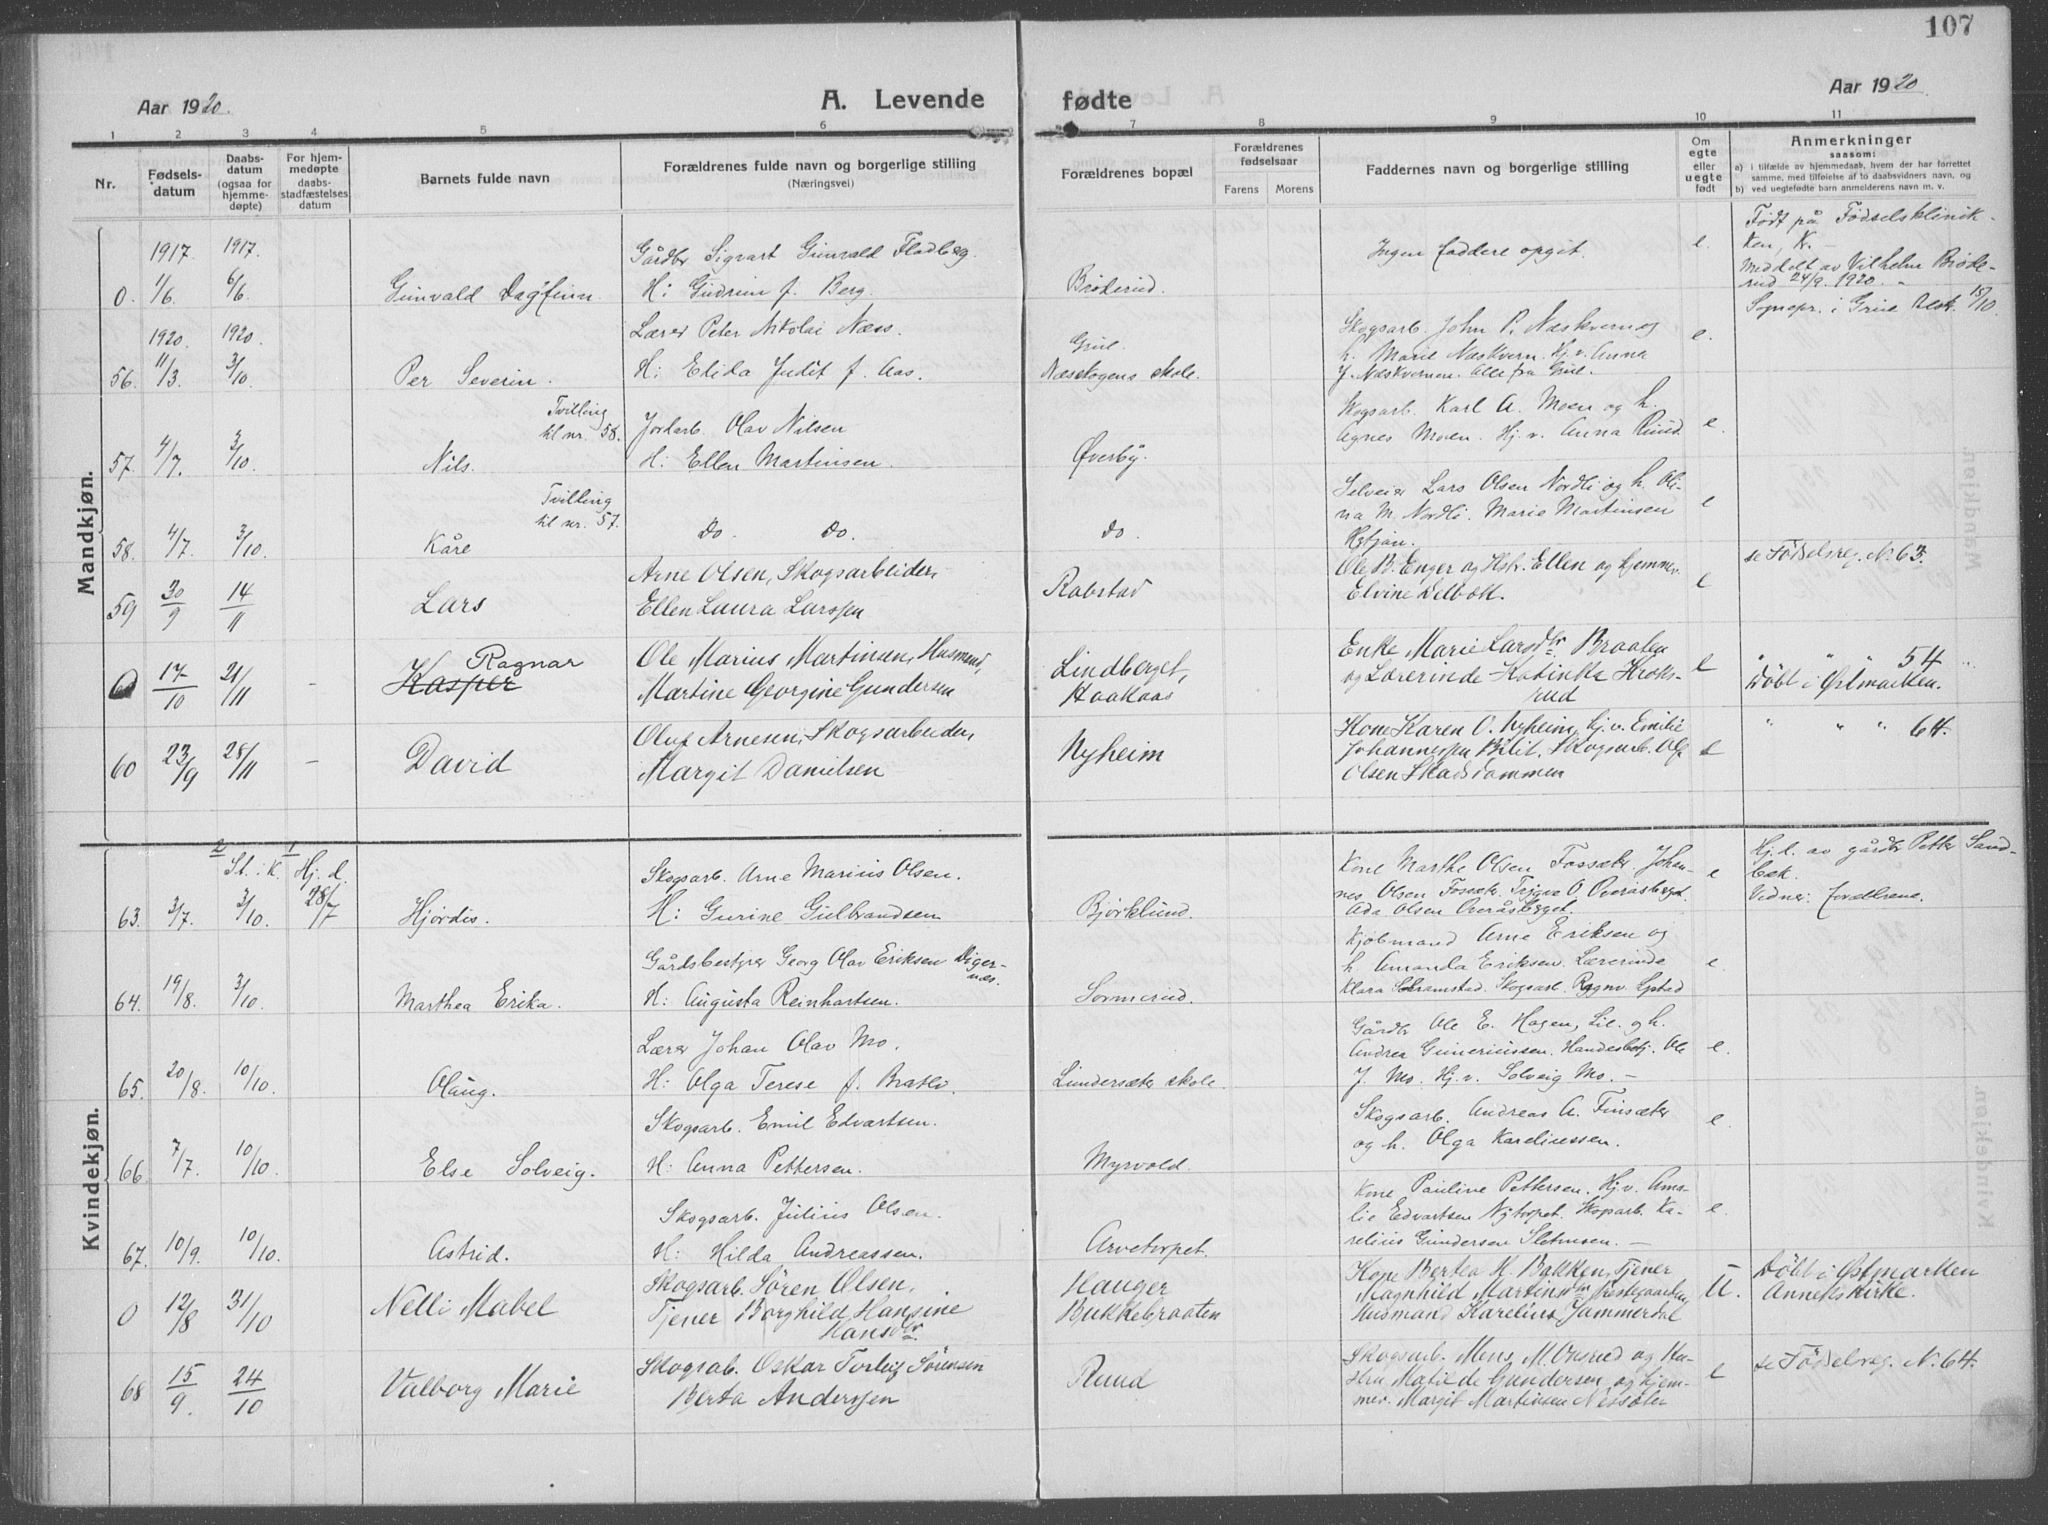 107
Aar 1920.
A. Levende
fødte
Aar 1920
1 2 3 4 5 6 7 8 9 10 11
Nr.
Fødsels-
datum
Daabs-
datum
(ogsaa for
hjemme-
døpte)
For hjem-
medøpte
daabs-
stadfæstelses
datum
Barnets fulde navn
Forældrenes fulde navn og borgerlige stilling
(Næringsvei)
Forældrenes bopæl
Forældrenes
fødselsaar
Farens Morens
Faddernes navn og borgerlige stilling
Om
egte
eller
uegte
født
Anmerkninger
saasom:
a) i tilfælde av hjemmedaab, hvem der har forrettet
samme, med tilføielse af to daabsvidners navn, og
b) ved uegtefødte barn anmelderens navn m. v.
Mandkjøn.
1917. 1917. Gårdbr Sigvart Gunvald Fladberg.
0. 1/6. 6/6. Gunvald Dagfinn. H: Gudrun f. Berg. Brøderud. Ingen faddere opgit. e.
Født på Fødselsklinik-
ken, K. -
Meddelt av Vilhelm Brøde-
rud 24/9. 1920.
Sognepr. i Grue Attest 15/10.
1920. 1920. Lærer Peter Nikolai Næss.
56. 11/3. 3/10. Per Severin. H: Elida Judit f. Aas. Grue. Næsskogens skole.
Skogsarb. John P. Næskvern og e.
h. Marie Næskvern. Hj. v. Anna
J. Næskvernen. Alle fra Grue.
Tvilling
til nr. 58.
57. 4/7. 3/10. Nils. Jordarb. Olav Nilsen
H: Ellen Martinsen. Øverby.
Skogsarb. Karl A. Moen og h.
Agnes Moen. Hj. v. Anna Ruud e.
Tvilling
til nr. 57.
58. 4/7. 3/10. Kåre do. do. do.
Selveier Lars Olsen Nordli og h. Oli-
na M. Nordli. Marie Martinsen e
59 30/9 14/11 Lars
Arne Olsen, Skogsarbeider,
Ellen Laura Larssen
Rabstad
Ole B. Enger og Hstr. Ellen og hjemmev.
Elvine Delbæk. e
se Fødselsreg. N. 63.
17/10 21/11 - Kasper Ragnar
Ole Marius Martinsen, Husmand,
Martine Georgine Gundersen
Lindberget,
Haakaas
Enke Marie Larsdtr Braaten
og Lærerinde Katinka Kroks-
rud e
" " " 54
Döbt i Østmarken.
60 23/9 28/11 - David
Oluf Arnesen, Skogsarbeider,
Margit Danielsen
Nyheim
Kone Karen O. Nyheim, hj. v. Emilie
Johannessen Skogsarb. Ole
Olsen Skadsdammen e
" " " 64.
Kvindekjøn.
2 St. i K. 1 Hj. d.
63. 3/7. 3/10. 28/7 Hjørdis.
Skogsarb. Arne Marius Olsen.
H: Gurine Gulbrandsen
Bjørklund.
Kone Marthe Olsen Fossæter. Johan- e
nes Olsen Fossæt. Trygve O. Overåsberget.
Ada Olsen Overåsberget.
Hj. d. av gårdbr Petter Sand-
bæk.
Vidner: forældrene.
64. 19/8. 3/10. Marthea Erika.
Gårdsbestyrer Georg Olav Eriksen Diger-
næs.
H: Augusta Reinhartsen.
Sormerud.
Kjøbmand Arne Eriksen og
h. Amanda Eriksen. Lærerinde e.
Klara Skramstad. Skogsarb. Ragnv. Lystad
65. 20/8. 10/10. Olaug.
Lærer Johan Olav Mo.
H: Olga Terese f. Bratlv.
Lundersæter skole.
Gårdbr Ole E. Hagen, Lil. og h.
Andrea Guneriussen. Handelsbetj. Ole e.
J. Mo. Hj. v. Solveig Mo. -
66. 7/7. 10/10. Else Solveig.
Skogsarb. Emil Edvartsen.
H: Anna Pettersen.
Myrvold.
Skogsarb. Andreas A. Finsæter e.
og h. Olga Kareliussen.
67. 10/9. 10/10. Astrid.
Skogsarb. Julius Olsen.
H: Hilda Andreassen.
Arvetorpet.
Kone Pauline Pettersen. Hj. v. Ama-
lie Edvartsen Nytorpet. Skogsarb. Ka- e.
relius Gundersen Sletmoen. -
0 12/8 31/10 Nelli Mabel
Skogsarb. Sören Olsen,
Tjener Borghild Hansine
Hansdtr
Hauger
Bukkebraaten
Kone Berthea H. Bakken, Tjener
Magnhild Martinsen Prestegaarden,
Husmand Karelius Jammerdal
U.
Döbt i Østmarken
Annekskirke.
68 15/9. 24/10 Valborg Marie
Skogsab. Oskar Torleif Sörensen
Berta Anderssen
Ruud
Skogsarb. Mens M. Onsrud og Hu-
stru Matilde Gundersen og hjem-
mev. Margit Martinsen Næssæter e
se Fødselsreg. N. 64.